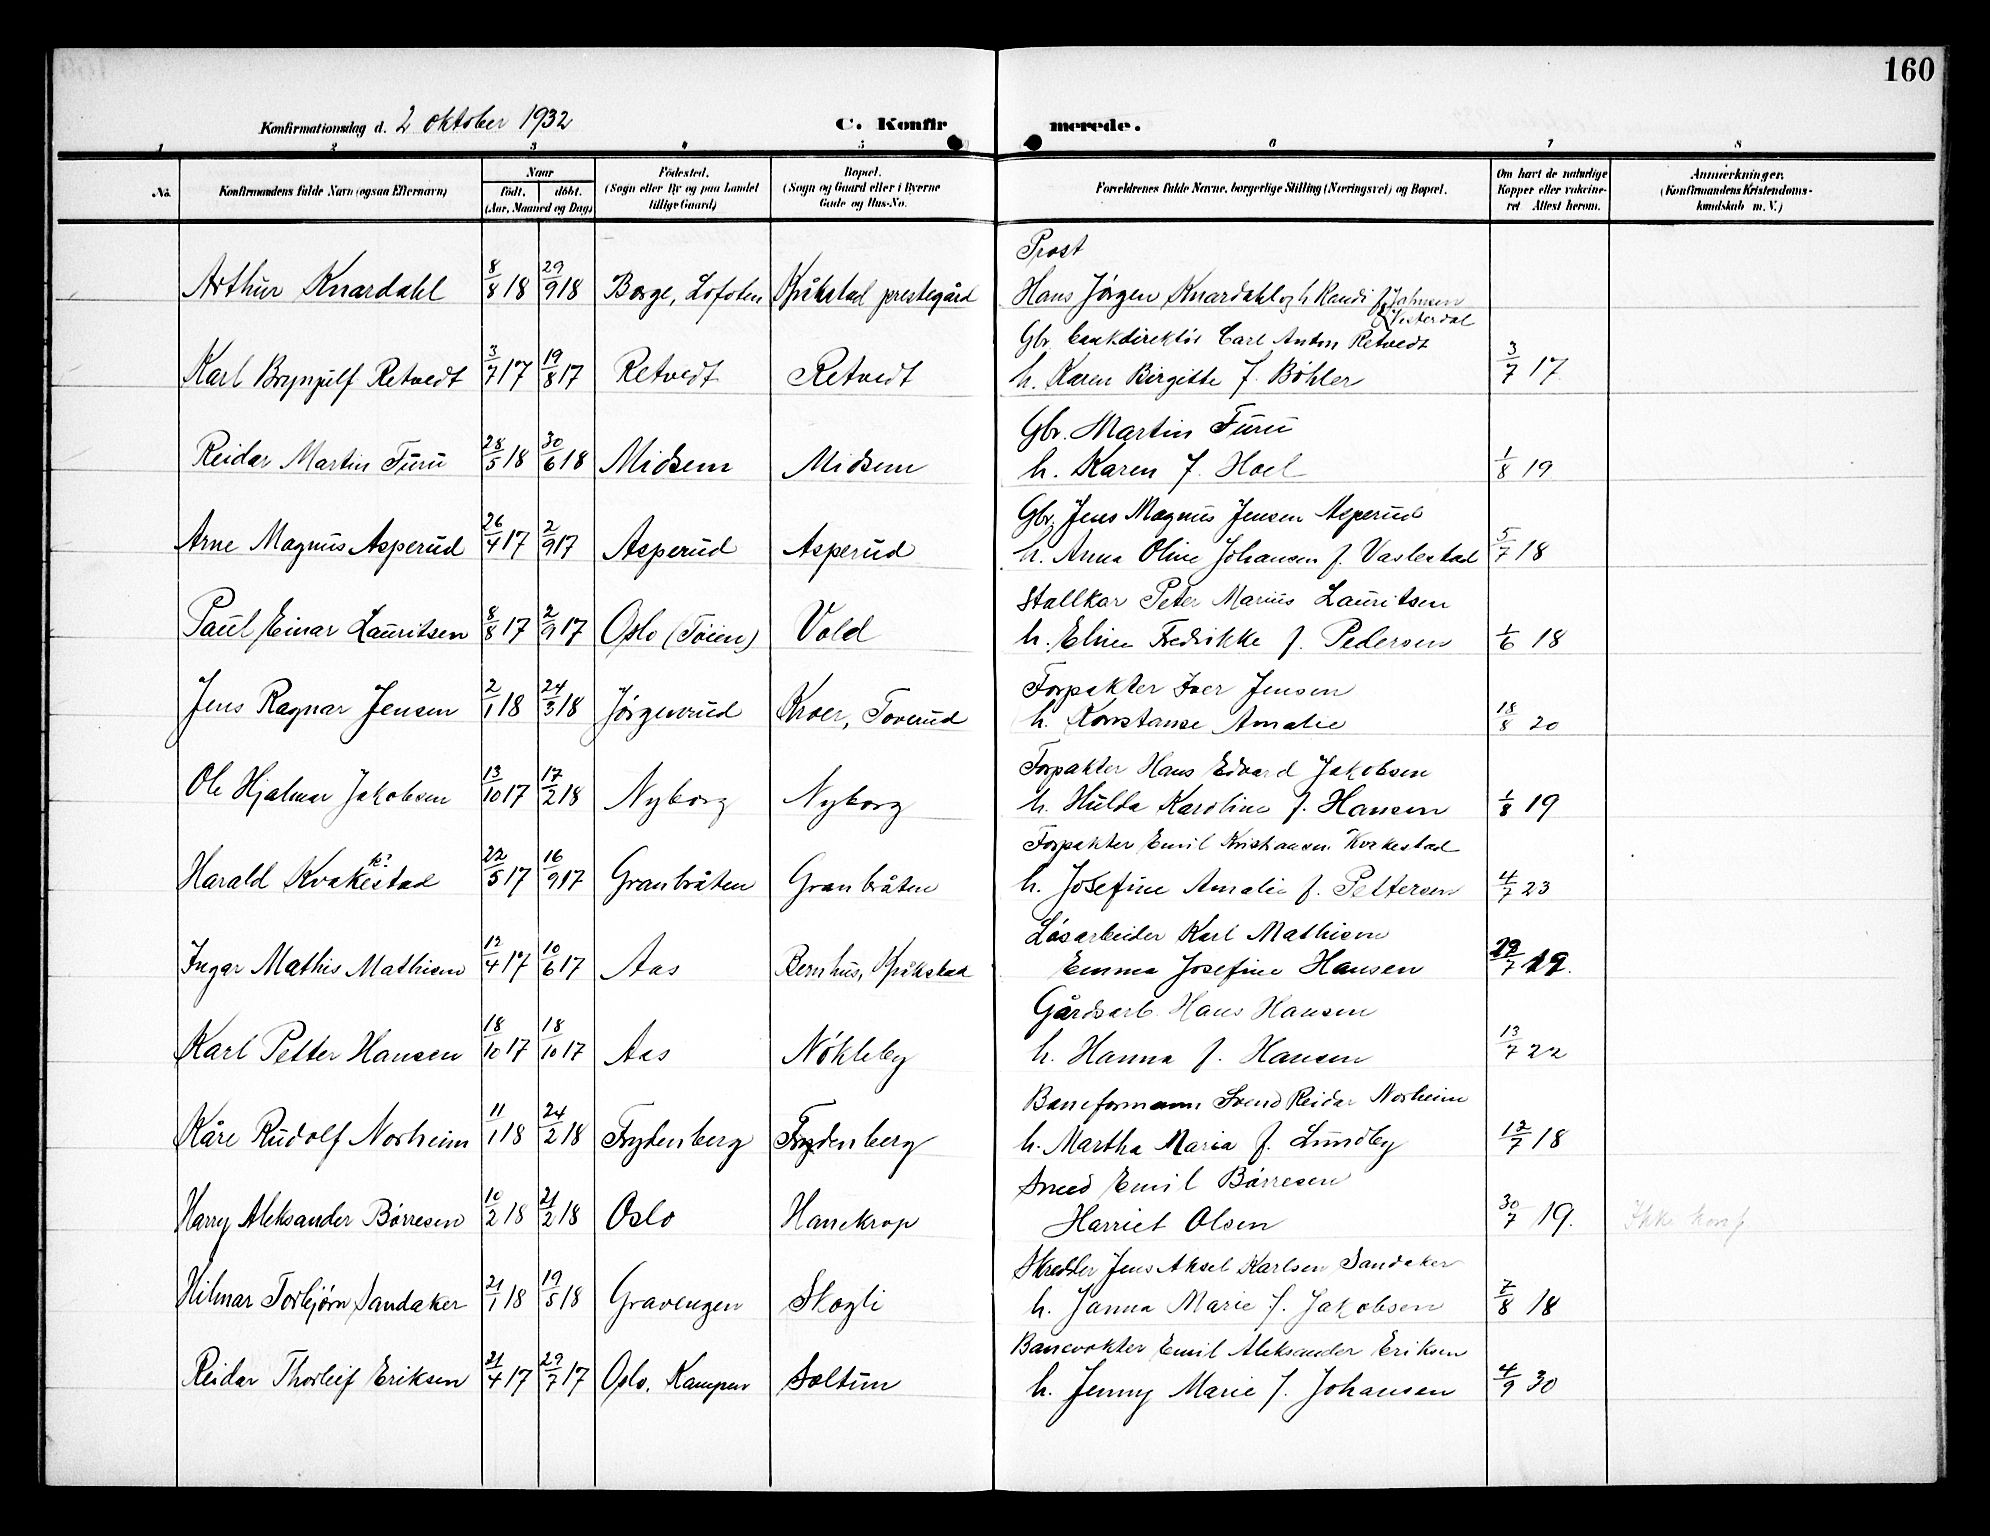 160
Konfirmationsdag d. 2 oktober 1932
C. Konfirmerede.
1 2 3 4 5 6 7 8
No.
Konfirmandens fulde Navn (ogsaa Efternavn)
Naar
født. døbt.
(Aar, Maaned og Dag)
Fødested.
(Sogn eller By og paa Landet
tillige Gaard)
Bopæl.
(Sogn og Gaard eller i Byerne
Gade og Hus-No.
Forældrenes fulde Navne, borgerlige Stilling (Næringsvei) og Bopæl.
Om havt de naturlige
Kopper eller vakcine-
ret Attest herom.
Anmærkninger.
(Konfirmandens Kristendoms-
kundskab m. V.)
Prost
Arthur Knardahl 8/8 18 29/9 18 Borge, Lofoten Kråkstad prestegård Hans Jørgen Knardahl og h. Randi f. Jahnsen
Vesterdal
Gbr. bankdirektør Carl Anton Retvedt
Karl Brynjulf Retvedt 3/7 17 19/8 17 Retvedt Retvedt h. Karen Birgitte f. Bøhler 3/7 17
Gbr. Martin Furu
Reidar Martin Furu 28/5 18 30/6 18 Midsem Midsem h. Karen f. Hoel 1/8 19
Gbr. Jens Magnus Jensen Asperud
Arne Magnus Asperud 26/4 17 2/9 17 Asperud Asperud h. Anna Oline Johansen f. Vaslestad 5/7 18
Stallkar Peter Marius Lauritsen
Paul Einar Lauritsen 8/8 17 2/9 17 Oslo (Tøien) Vold h. Eline Fredrikke f. Pedersen 1/6 18
Forpakter Iver Jensen
Jens Ragnar Jensen 2/1 18 24/3 18 Jørgenrud Kroer, Toverud h. Konstanse Amalie 18/8 20
Forpakter Hans Edvard Jakobsen
Ole Hjalmar Jakobsen 13/10 17 17/2 18 Nyborg Nyborg h. Hulda Karoline f. Hansen 1/8 19
Forpakter Emil Kristiansen Kvakestad
k?
Harald Kvakestad 22/5 17 16/9 17 Granbråten Granbråten h. Josefine Amalie f. Pettersen 4/7 23
Løsarbeider Karl Mathisen
Ingar Mathis Mathisen 12/4 17 10/6 17 Aas Bernhus, Kråkstad Emma Josefine Hansen 29/7 19.
Gårdsarb. Hans Hansen
Karl Petter Hansen 18/10 17 18/10 17 Aas Nøkleby h. Hanna f. Hansen 13/7 22
Baneformann Svend Reidar Norheim
Kåre Rudolf Norheim 11/1 18 24/2 18 Frydenberg Frydenberg h. Martha Maria f. Lundby 12/7 18
Smed Emil Børresen
Harry Aleksander Børresen 10/2 18 21/2 18 Oslo Hanekrop Harriet Olsen 30/7 19. Ikke konf.
Skredder Jens Aksel Karlsen Sandaker
Hilmar Torbjørn Sandaker 21/1 18 19/5 18 Gravengen Skogli h. Janna Marie f. Jakobsen 7/8 18
Banevokter Emil Aleksander Eriksen
Reidar Thorleif Eriksen 21/4 17 29/7 17 Oslo, Kampen Soltun h. Jenny Marie f. Johansen 4/9 30